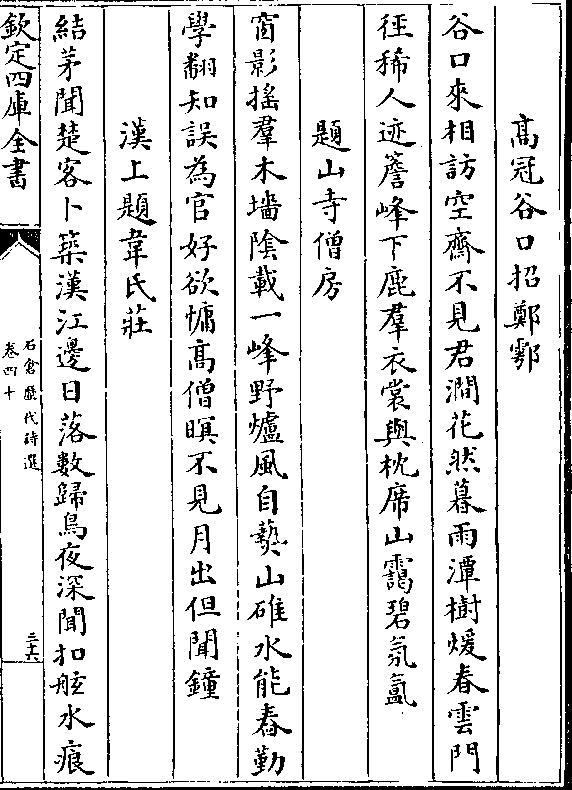 高冠谷口招鄭鄠
谷口來相訪空齋不見君澗花然暮雨潭樹煖春雲門
徑稀人迹簷峰下鹿羣衣裳與枕席山靄碧氛氳
題山寺僧房
窗影搖羣木墻陰載一峰野爐風自爇山碓水能舂勤
學翻知誤為官好欲慵高僧暝不見月出但聞鐘
漢上題韋氏莊
結茅聞楚客卜築漢江邊日落數歸鳥夜深聞扣舷水痕
欽定四庫全書
石倉歷代詩選
卷四十
三十六